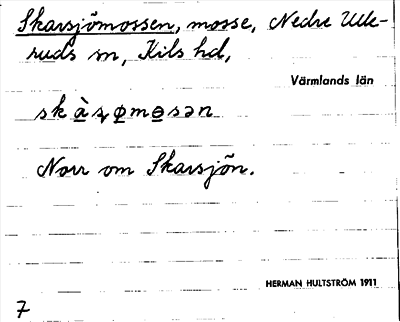 Skarsjömossen, mosse, Nedre Ulle-
ruds sn, Kils hd,
Värmlands län
Norr om Skarsjön.
HERMAN HULTSTRÖM 1911
7